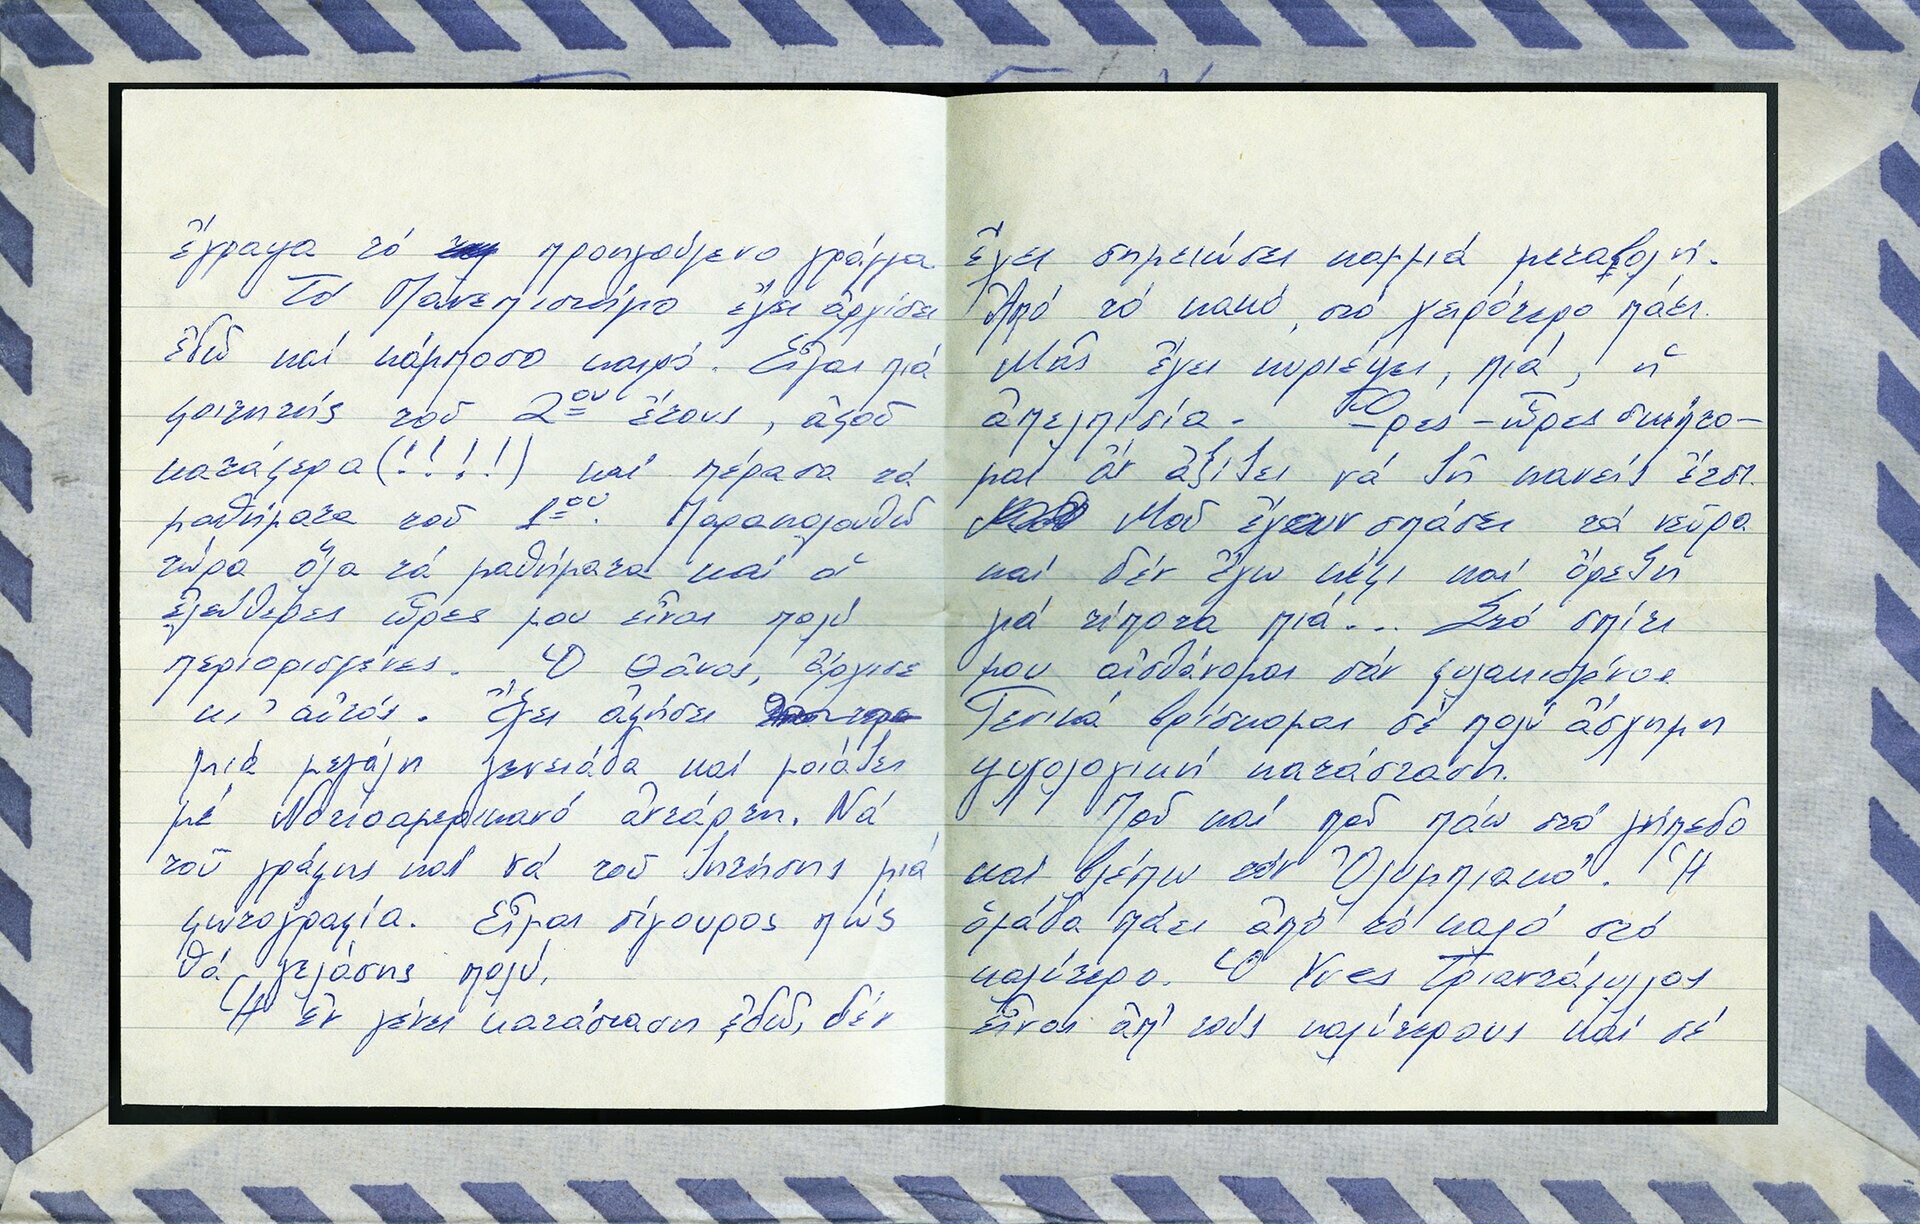 ἔγραψα τό προηγούμενο γράμμα
Τό Πανεπιστήμιο ἔχει ἀρχίσει
ἐδῶ καί κάμποσο καιρό. Εἶμαι πιά
φοιτητής τοῦ 2ου ἔτους, ἀφοῦ
κατάφερα (!!!!) καί πέρασα τά
μαθήματα τοῦ 1ου. Παρακολουθῶ
τώρα ὅλα τά μαθήματα καί οἱ
ἐλεύθερες ὧρες μου εἶναι πολύ
περιορισμένες. Ὁ Θάνος, ἄρχισε
κι' αὐτός. Ἔχει ἀφήσει
μιά μεγάλη γενειάδα καί μοιάζει
μέ Νοτιοαμερικανό ἀντάρτη. Νά
τοῦ γράψης καί νά τοῦ ζητήσης μιά
φωτογραφία. Εἶμαι σίγουρος πώς
θά γελάσης πολύ.
Ἡ ἐν γένει κατάσταση, ἐδῶ, δέν
ἔχει σημειώσει καμμιά μεταβολή.
Ἀπό τό κακό, στό χειρότερο πάει.
Μᾶς ἔχει κυριέψει, πιά, ἡ
ἀπελπισία. Ὧρες - ὧρες σκέπτο-
μαι ἄν ἀξίζει νά ζῆ κανείς ἔτσι.
Μοῦ ἔχουν σπάσει τά νεῦρα
καί δέν ἔχω κέφι καί ὄρεξη
γιά τίποτα πιά... Στό σπίτι
μου αἰσθάνομαι σάν φυλακισμένος
Γενικά βρίσκομαι σέ πολύ ἄσχημη
ψυχολογική κατάσταση.
Ποῦ καί ποῦ πάω στό γήπεδο
καί βλέπω τόν Ὀλυμπιακό. Ἡ
ὁμάδα πάει ἀπό τό καλό στό
καλύτερο. Ὁ Υves Τριαντάφυλλος
εἶναι ἀπ' τούς καλύτερους καί σέ